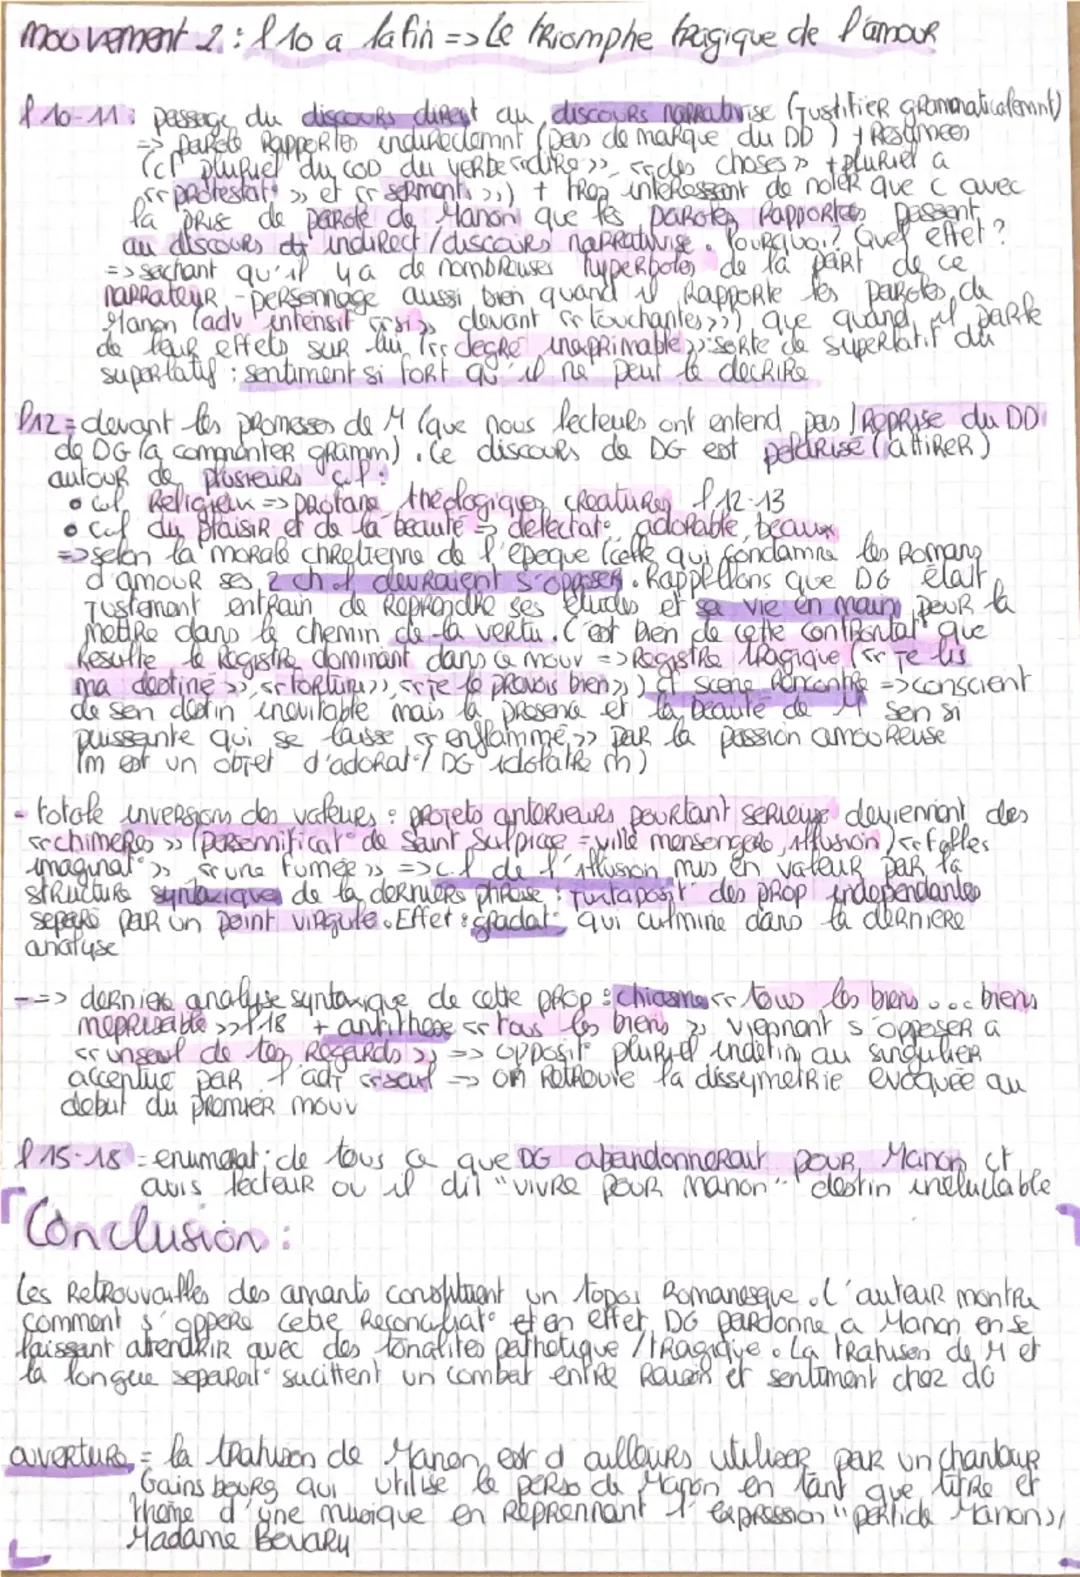 mouvement 2 : l 10 a la fin => Le triomphe tragique de l'amour
l 10-11 : passage du discours direct au discours narrativise (Justifier grammaticalement)
=> parole rapportes indirectemnt (pas de marque du DD) + resumees
(cf pluriel du COD du verbe « dire », « des choses » + pluriel a
« protestat° » et « serments ») + trop interessant de noter que c avec
la prise de parole de Manon que les paroles rapportees passent
au discours indirect / discours narrativise. Pourquoi? Quel effet?
=> sachant qu'il y a de nombreuses hyperboles de la part de ce
narrateur-personnage aussi bien quand il rapporte les paroles de
Manon (adv intensit « si » devant « touchantes ») que quand il parle
de leur effets sur lui « degre inexprimable » : sorte de superlatif du
superlatif : sentiment si fort qu'il ne peut le decrire
l 12 = devant les promesses de M (que nous lecteurs ont entend pas / reprise du DD
de DG (a commenter gramm). Ce discours de DG est polarise (attirer)
autour de plusieurs c.l :
• c.l religieux => profane theologiques creatures l 12-13
• c.l du plaisir et de la beauté => delectat°, adorable, beaux
=> selon la morale chretienne de l'epoque (celle qui condamne les romans
d'amour ses 2 ch.l devraient s'opposer. Rappellons que DG était
justement entrain de reprendre ses etudes et sa vie en main pour la
mettre dans le chemin de la vertu. C'est bien de cette confrontat° que
resulte le registre dominant dans ce mouv => registre tragique (« je lis
ma destiné », « torture », « je le prevois bien ») et scene rencontre => conscient
de son destin inevitable mais la presence et la beauté de M son si
puissante qui se laisse « enflammé » par la passion amoureuse
(m est un objet d'adorat° / DG idolatre m)
- totale inversions des valeurs : projets anterieurs pourtant serieux deviennent des
« chimeres » (personnificat° de Saint Sulpice = ville mensongere, illusion) « folles
imaginat° », « une fumée » => c.l de l'illusion mis en valeur par la
structure syntaxique de la derniere phrase : juxtaposit° des prop independantes
separé par un point virgule. Effet : gradat° qui culmine dans la derniere
analyse
-=> derniere analyse syntaxique de cette prop : chiasme « tous les biens ... biens
meprisable » l 18 + antithese « tous les biens » viennent s'opposer a
« un seul de tes regards » => opposit° pluriel indefini au singulier
accentué par l'adj « seul => on retrouve la dissymetrie evoquée au
debut du premier mouv
l 15-18 = enumerat° de tous ce que DG abandonnerait pour Manon cf
avis lecteur ou il dit "vivre pour Manon" destin ineluctable
Conclusion :
Les retrouvailles des amants constituent un topos romanesque. L'auteur montre
comment s'oppere cette reconciliat° et en effet, DG pardonne a Manon en se
laissant attendrir avec des tonalites pathetique / tragique. La trahison de M et
la longue separat° sucittent un combat entre raison et sentiment chez dG
ouverture = la trahison de Manon est d ailleurs utiliser par un chanteur
Gainsbourg qui utilise le perso de Manon en tant que titre et
theme d'une musique en reprennant l'expression "perfide Manon" /
Madame Bovary